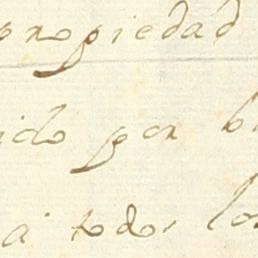 propiedad
ido por b
a todos los